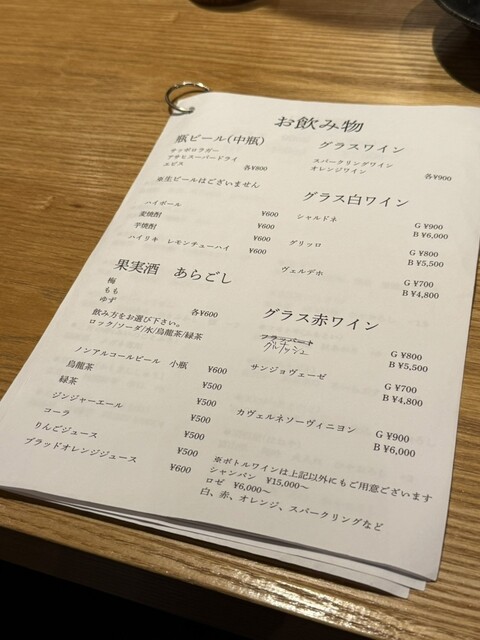 お飲み物
瓶ビール(中瓶)
サッポロラガー
アサヒスーパードライ
エビス 各¥800
※生ビールはございません
ハイボール ¥600
麦焼酎 ¥600
芋焼酎 ¥600
ハイリキ レモンチューハイ ¥600
果実酒 あらごし
梅
もも
ゆず 各¥600
飲み方をお選び下さい。
ロック/ソーダ/水/烏龍茶/緑茶
ノンアルコールビール 小瓶 ¥600
烏龍茶 ¥500
緑茶 ¥500
ジンジャーエール ¥500
コーラ ¥500
りんごジュース ¥500
ブラッドオレンジジュース ¥600
グラスワイン
スパークリングワイン
オレンジワイン 各¥900
グラス白ワイン
シャルドネ G ¥900
B ¥6,000
グリッロ G ¥800
B ¥5,500
ヴェルデホ G ¥700
B ¥4,800
グラス赤ワイン
グルナッシュ G ¥800
B ¥5,500
サンジョヴェーゼ G ¥700
B ¥4,800
カヴェルネソーヴィニヨン G ¥900
B ¥6,000
※ボトルワインは上記以外にもご用意ございます
シャンパン ¥15,000～
ロゼ ¥6,000～
白、赤、オレンジ、スパークリングなど